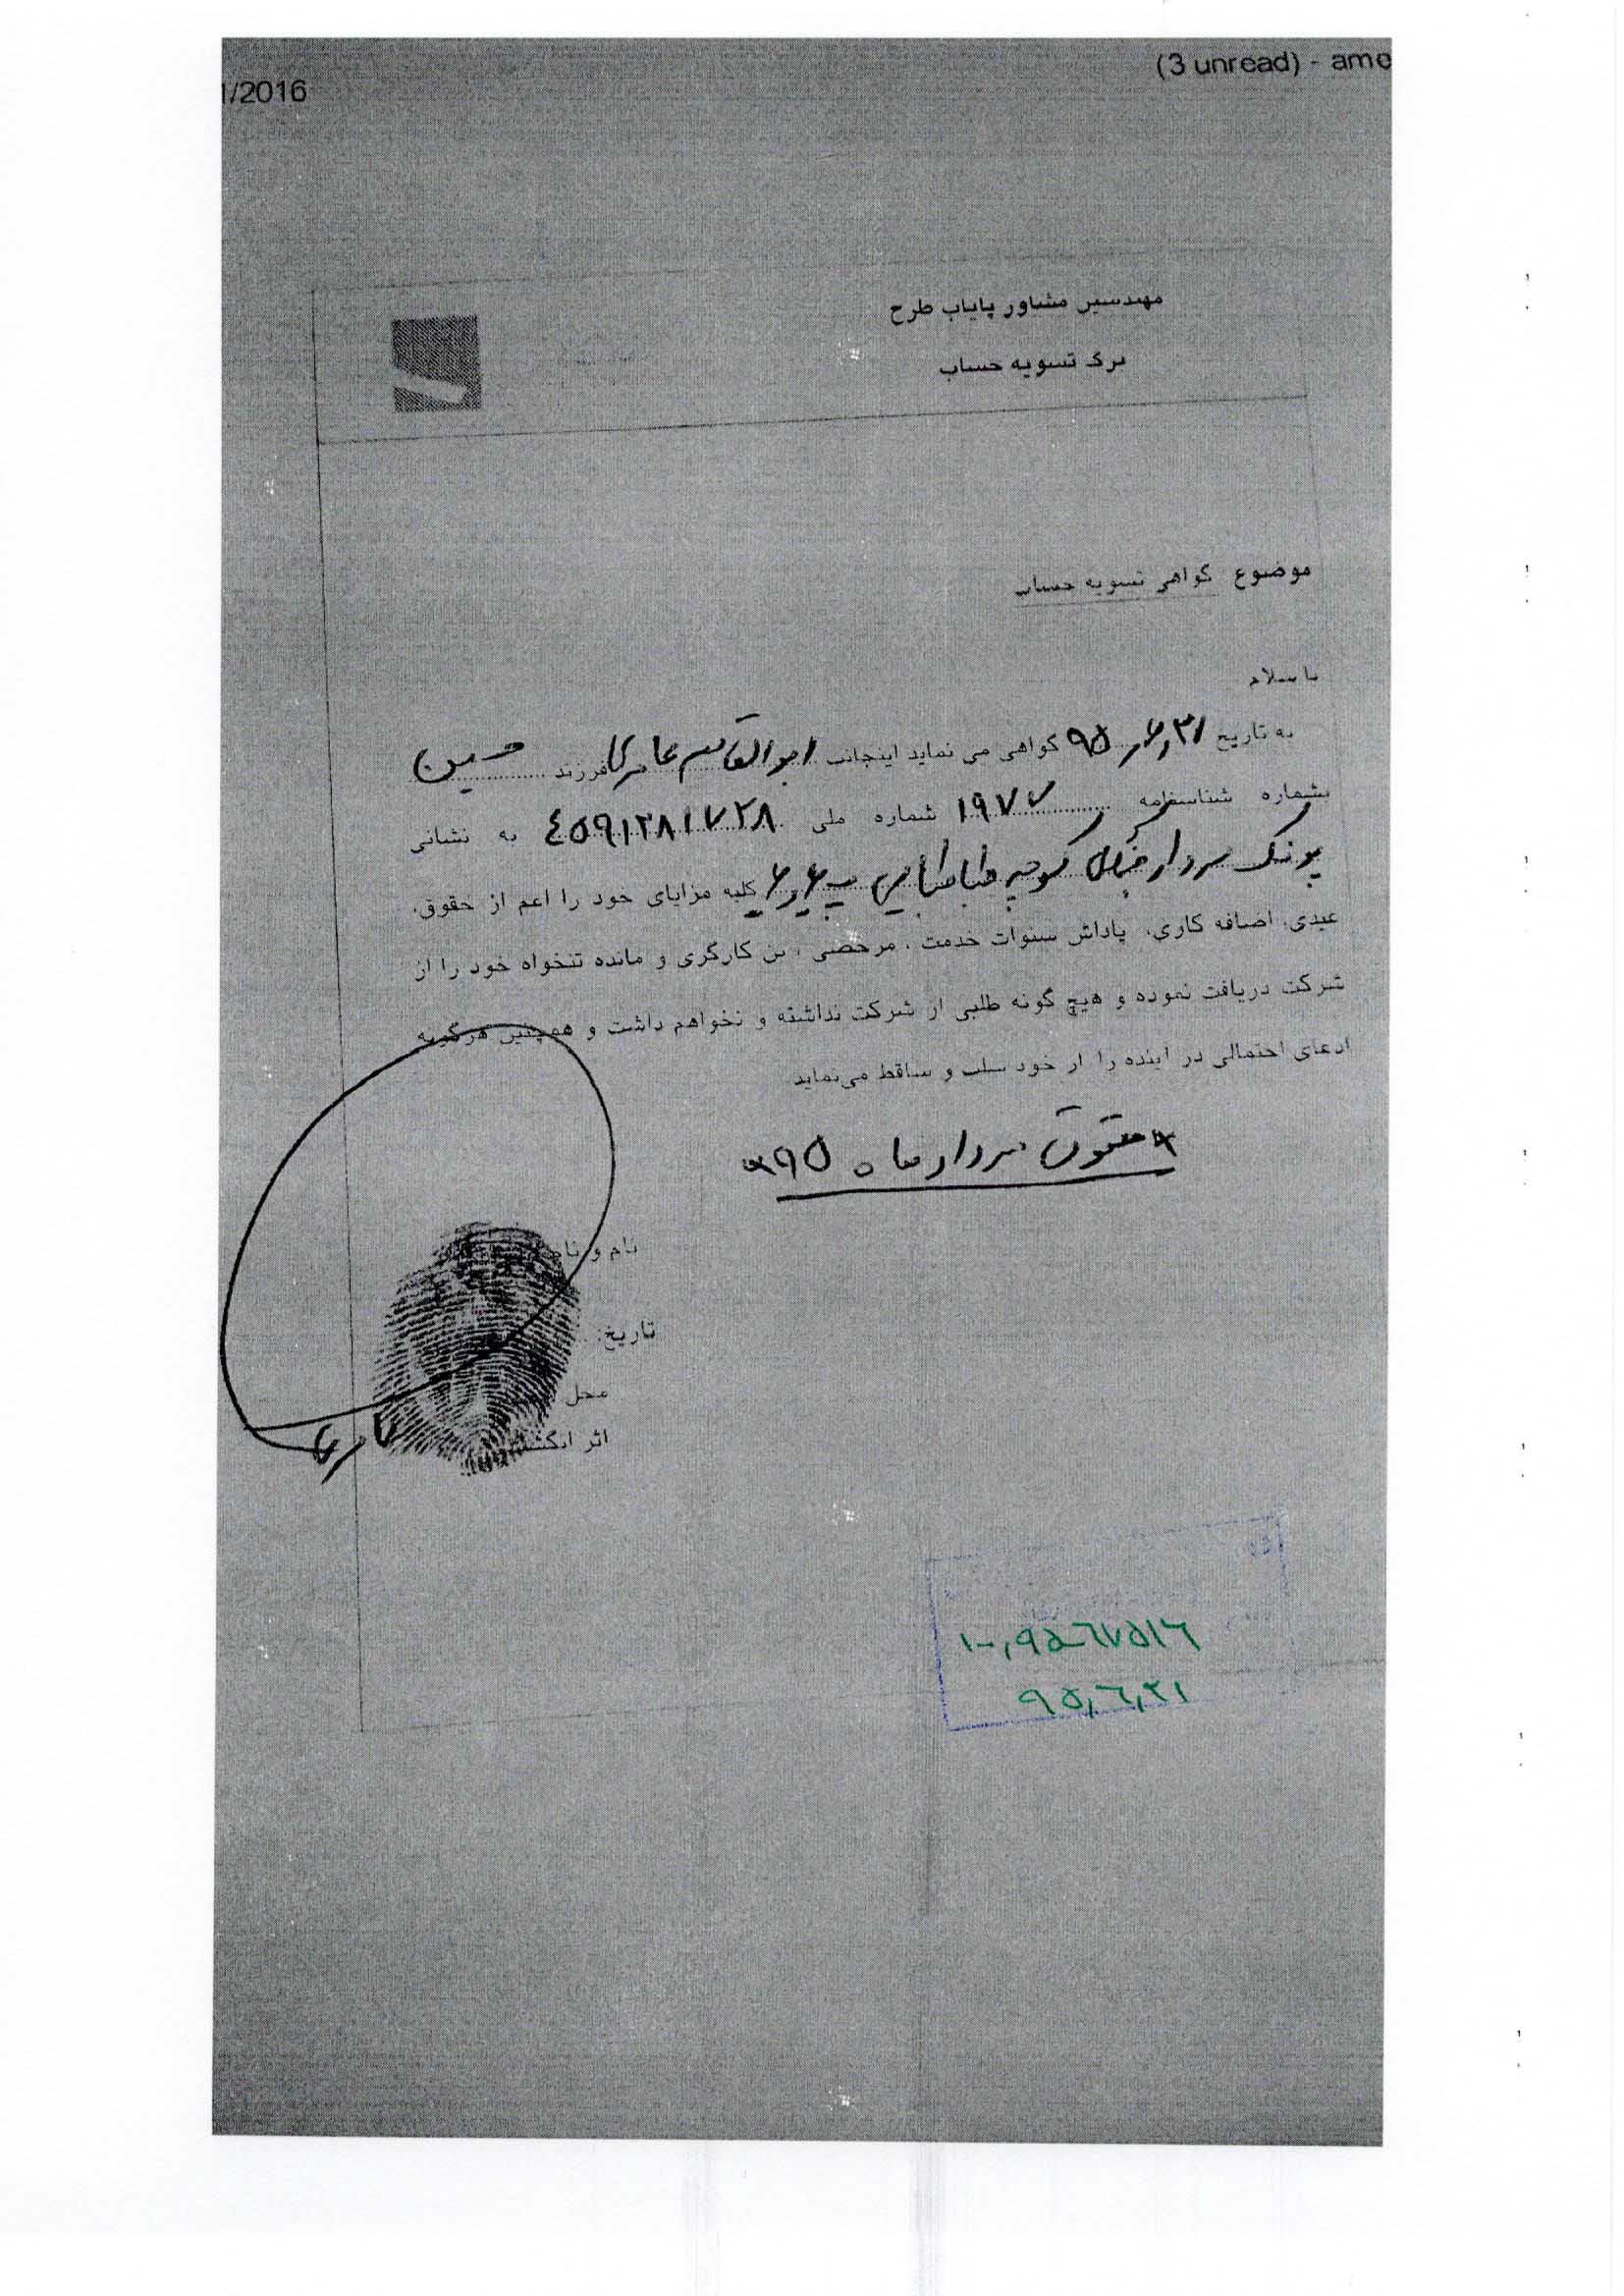 (3 unread) - ame
1/2016
مهندسین مشاور پایاب طرح
برگ تسویه حساب
موضوع گواهی تسویه حساب
با سلام
به تاریخ ۹۵,۶,۳۱ گواهی می نماید اینجانب ابوالقاسم عامری فرزند حسین
بشماره شناسنامه ۱۹۷۷ شماره ملی ۴۵۹۱۲۸۱۷۲۸ به نشانی
پونک سردار جنگل کوچه طباطبایی کلیه مزایای خود را اعم از حقوق،
عیدی، اضافه کاری، پاداش سنوات خدمت، مرخصی، بن کارگری و مانده تنخواه خود را از
شرکت دریافت نموده و هیچ گونه طلبی از شرکت نداشته و نخواهم داشت و همچنین هرگونه
ادعای احتمالی در آینده را از خود سلب و ساقط می‌نماید
* حقوق مرداد ماه ۹۵ *
نام و نام
تاریخ:
محل
اثر انگشت
عامری
۹۵,۶,۳۱